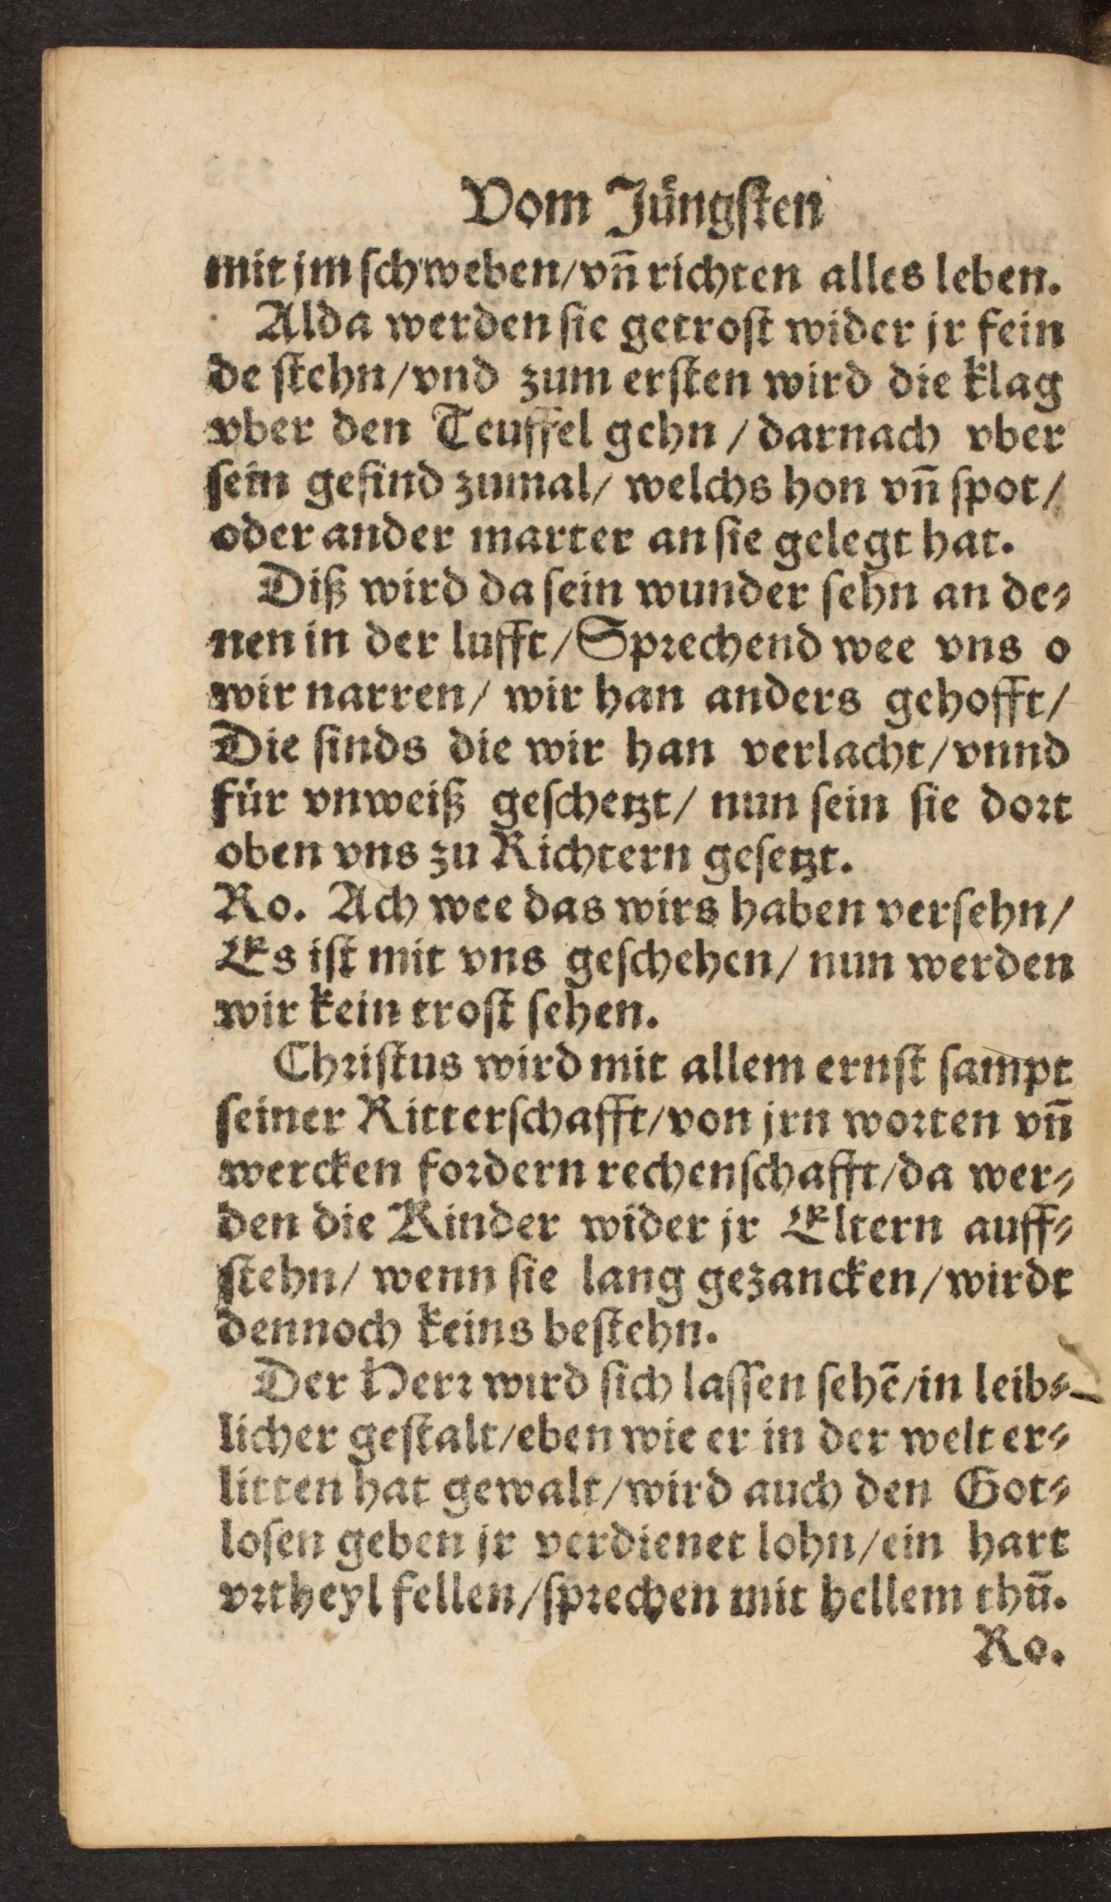 Vom Jüngsten
mit jm schweben/vn̄ richten alles leben.
Alda werden sie getrost wider jr fein
de stehn/vnd zum ersten wird die klag
vber den Teuffel gehn/darnach vber
sein gesind zumal/ welchs hon vn̄ spot/
oder ander marter an sie gelegt hat.
Diß wird da sein wunder sehn an de⸗
nen in der lufft/Sprechend wee vns o
wir narren/ wir han anders gehofft/
Die sinds die wir han verlacht/vnnd
für vnweiß geschetzt/ nun sein sie dort
oben vns zu Richtern gesetzt.
Ro. Ach wee das wirs haben versehn/
Es ist mit vns geschehen/ nun werden
wir kein trost sehen.
Christus wird mit allem ernst sampt
seiner Ritterschafft/von jrn worten vn̄
wercken fordern rechenschafft/da wer⸗
den die Kinder wider jr Eltern auff⸗
stehn/ wenn sie lang gezancken/wirdt
dennoch keins bestehn.
Der Herr wird sich lassen sehē/in leib⸗
licher gestalt/eben wie er in der welt er⸗
litten hat gewalt/wird auch den Got⸗
losen geben jr verdienet lohn/ein hart
vrtheyl fellen/sprechen mit hellem thū.
Ro.